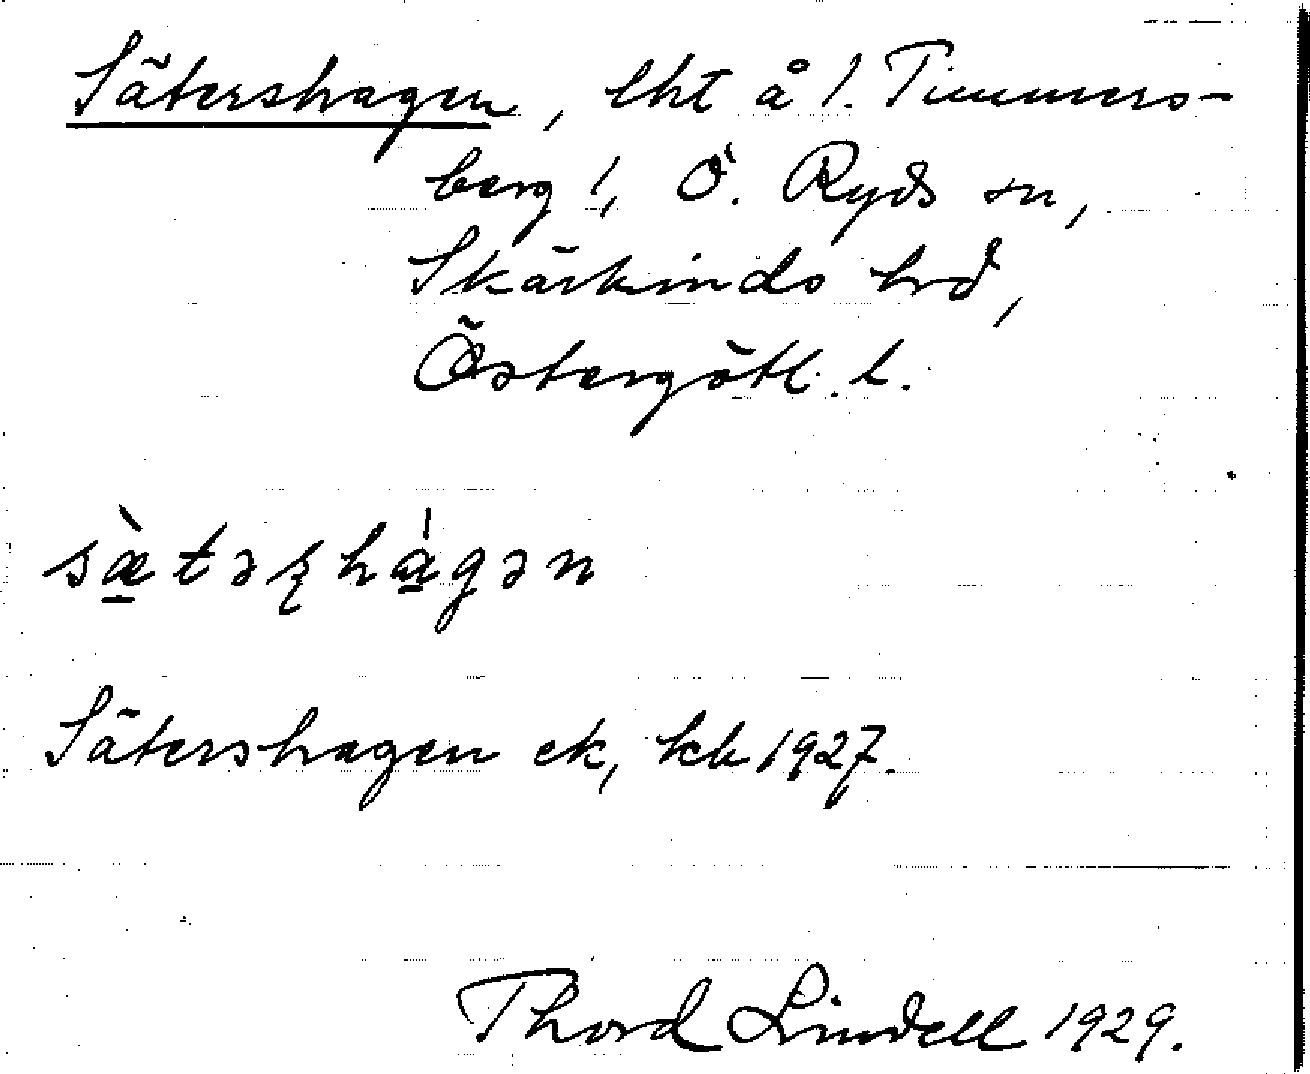 Sätershagen, lht å 1. Timmers-
berg 1, Ö. Ryds sn,
Skärkinds hrd,
Östergötl. l.
sæ̠̀təʂhɑ̠́gən
Sätershagen ek, kck 1927.
Thord Lindell 1929.